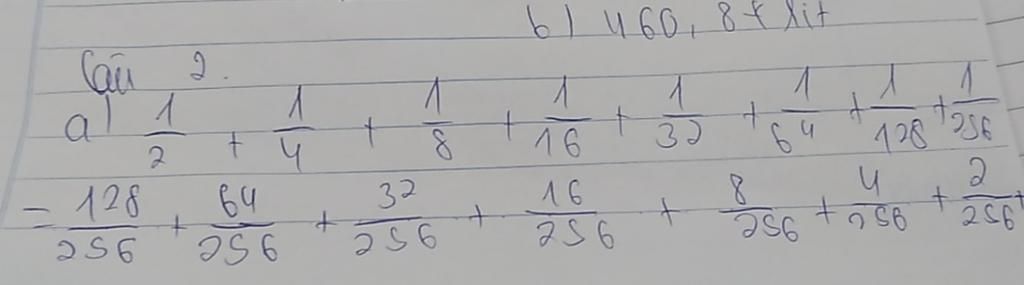 b) 460,8 lít
Câu 2.
a) 1/2 + 1/4 + 1/8 + 1/16 + 1/32 + 1/64 + 1/128 + 1/256
= 128/256 + 64/256 + 32/256 + 16/256 + 8/256 + 4/256 + 2/256 +